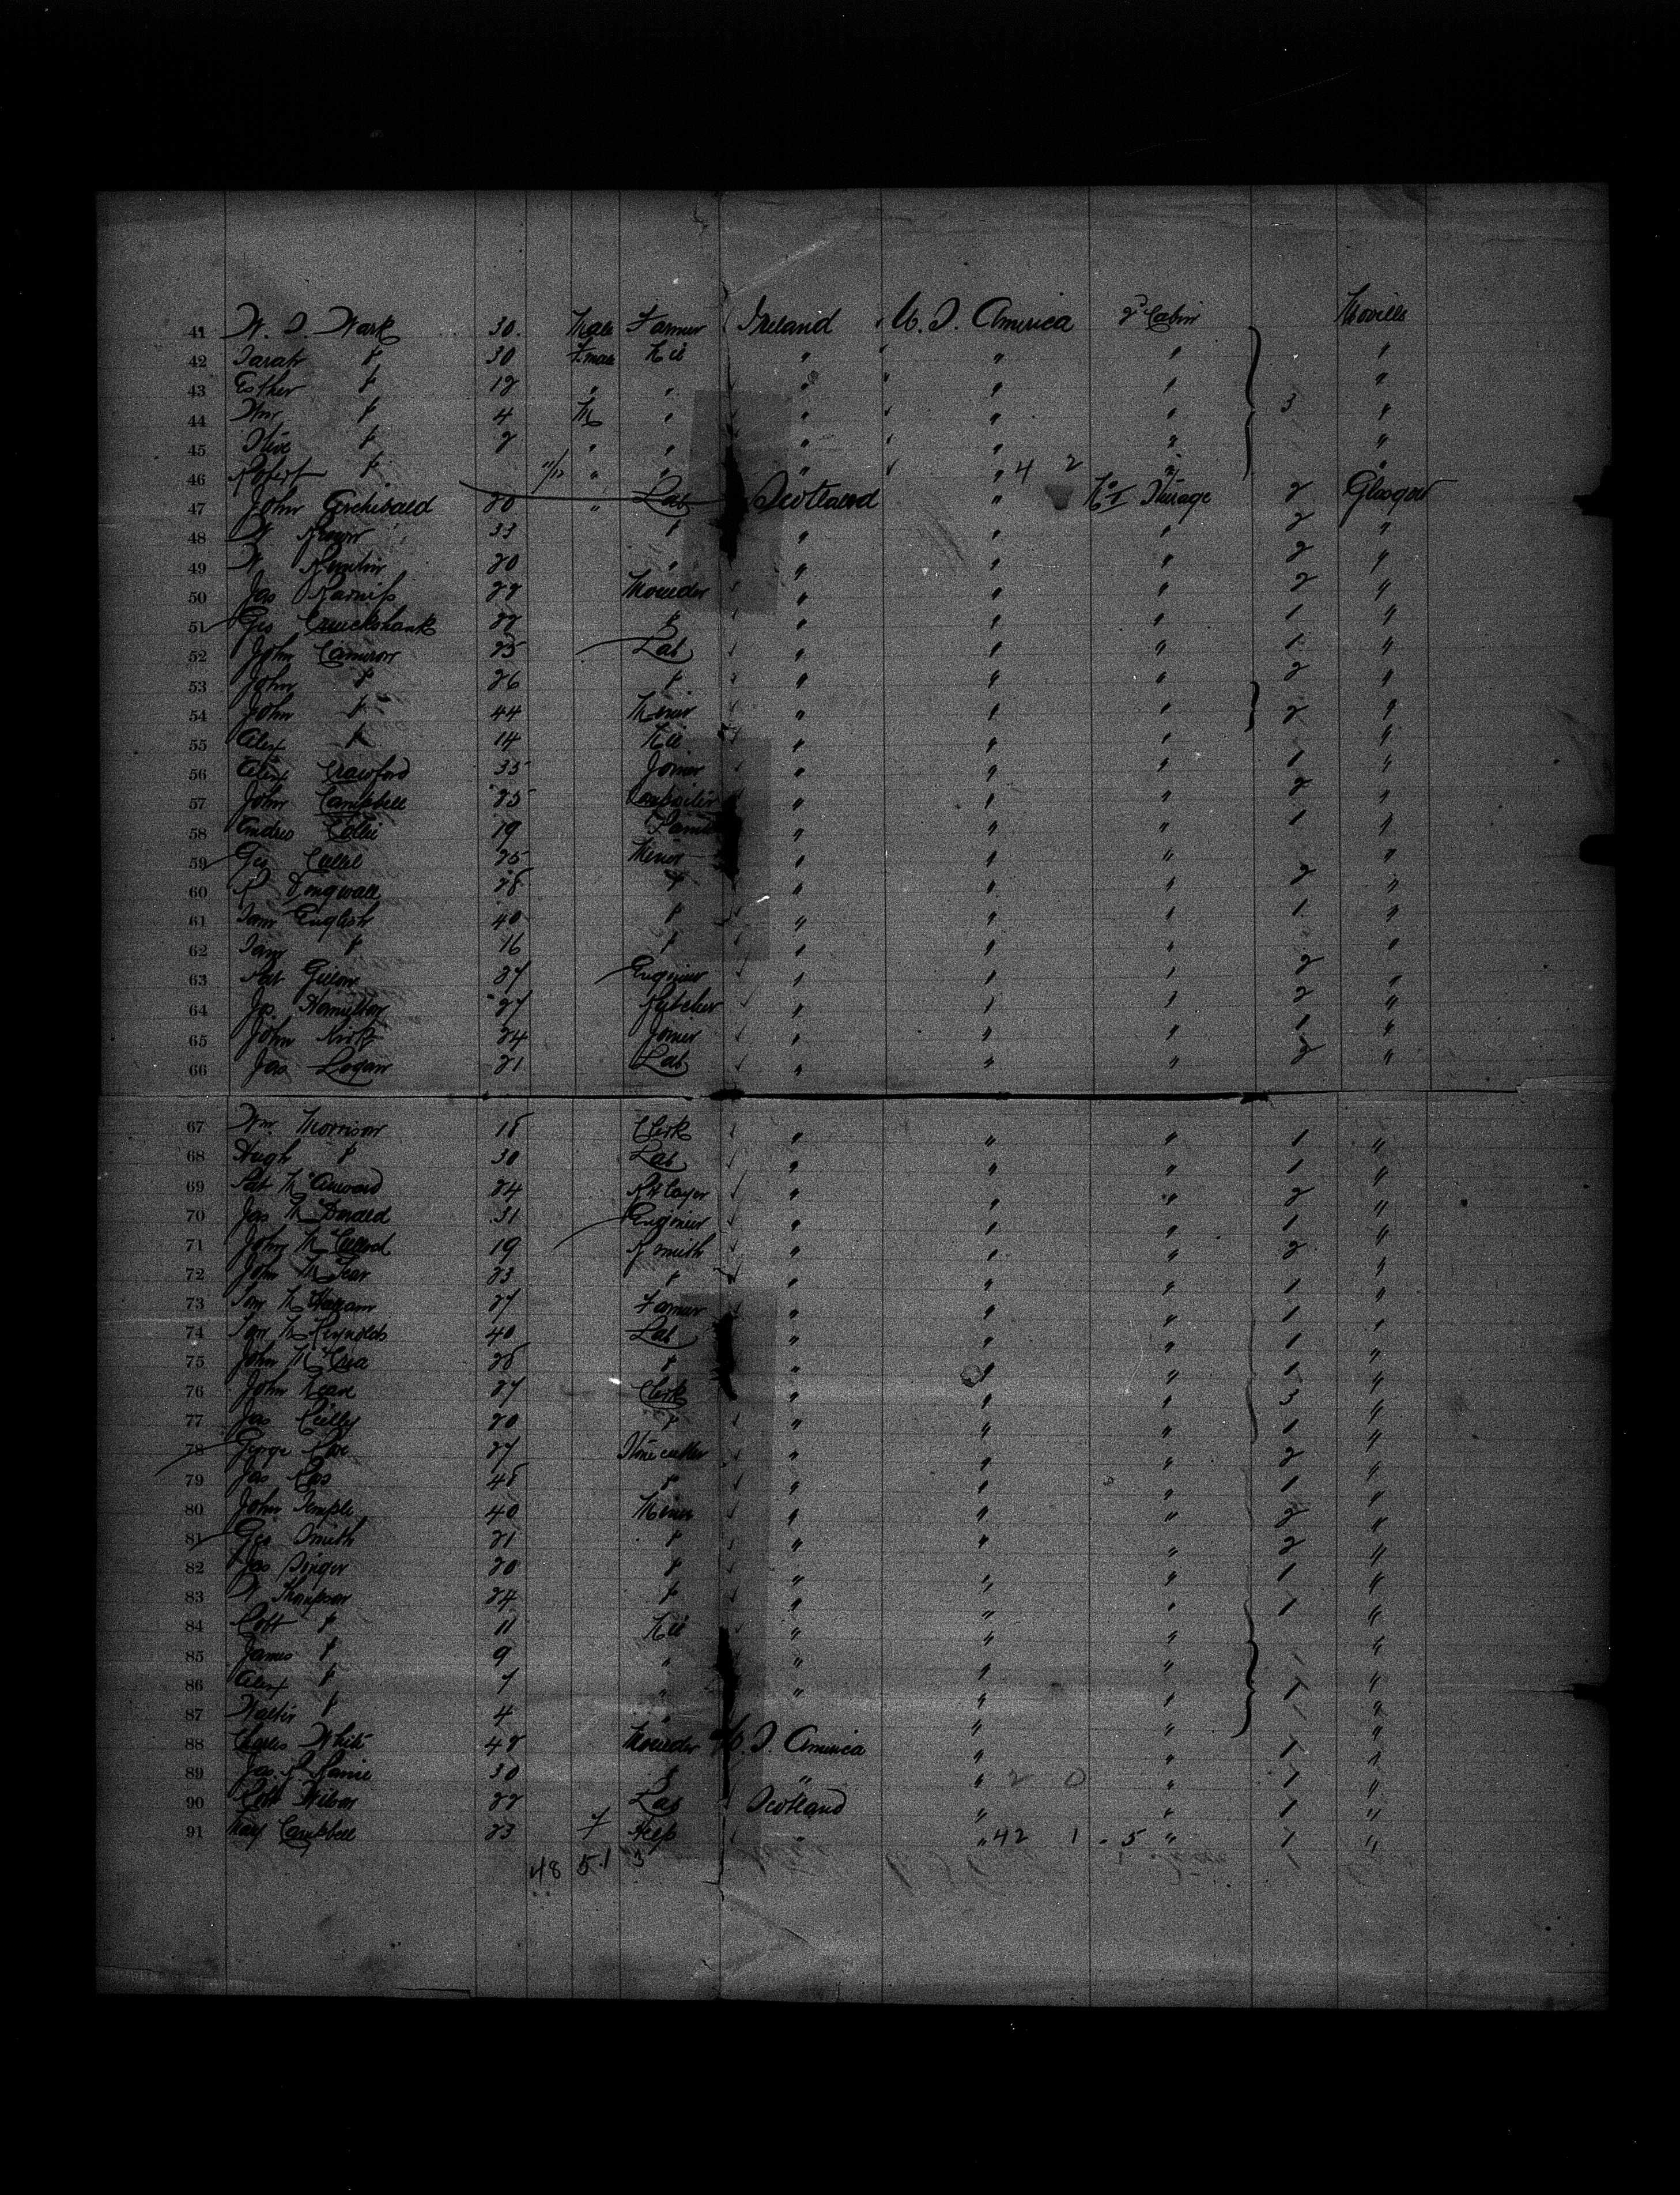 41 W. S. Wark 30 Male Farmer Ireland U. S. America 2d Cabin Moville
42 Sarah " 30 F.male Nil " " " "
43 Esther " 12 " " " " " "
44 Wm " 4 M " " " " 3 "
45 Olive " 2 " " " " " "
46 Robert " 11/12 " " " " 4 2 " "
47 John Archibald 20 " Lab Scotland " No 1 Steerage 2 Glasgow
48 W Brown 33 " " " " 2 "
49 W 20 " " " " 2 "
50 Jas 22 Moulder " " " 2 "
51 Geo Cruickshank 22 " " " " 1 "
52 John Cameron 25 Lab " " " 1 "
53 John " 26 " " " " 2 "
54 John " 44 Miner " " " 2 "
55 Alex " 14 Nil " " " "
56 Alex Crawford 35 Joiner " " " 1 "
57 John Campbell 25 " " " 2 "
58 Andrew Collie 19 " " " 1 "
59 Geo 25 Miner " " " "
60 R Dingwall 28 " " " " 2 "
61 Sam English 40 " " " " 1 "
62 Sam " 16 " " " " "
63 Pat Gillon 27 Engineer " " " 2 "
64 Jas Hamilton 27 Butcher " " " 2 "
65 John Kirk 24 Joiner " " " 1 "
66 Jas Logan 21 Lab " " " 2 "
67 Wm Morrison 18 Clerk " " " 1 "
68 Hugh " 30 Lab " " " 1 "
69 Pat 24 Bk layer " " " 2 "
70 Jas McDonald 31 Engineer " " " 1 "
71 John 19 B smith " " " 2 "
72 John 23 " " " " 1 "
73 27 Farmer " " " 1 "
74 McReynolds 40 Lab " " " 1 "
75 John McCrea 28 " " " " 1 "
76 John 27 Clerk " " " 3 "
77 Jas Reilly 20 " " " " 1 "
78 George 27 Stonecutter " " " 2 "
79 Jas 48 " " " " 1 "
80 John Temple 40 Miner " " " 2 "
81 Geo Smith 21 " " " " 2 "
82 Jas Singer 20 " " " " 1 "
83 W Thompson 24 " " " " 1 "
84 Robt " 11 Nil " " " "
85 James " 9 " " " " "
86 Alex " 7 " " " " 1 "
87 Walter " 4 " " " "
88 Charles White 42 Moulder U. S. America " " 1 "
89 Jas 30 " " " 2 0 " 1 "
90 Robt Wilson 22 Lab Scotland " " 1 "
91 Mary Campbell 23 F " " 42 1 - 5 " 1 "
48 5 1 3